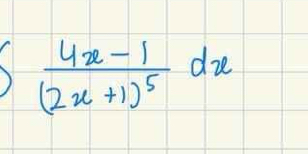 ∫ (4x - 1)/(2x + 1)^5 dx